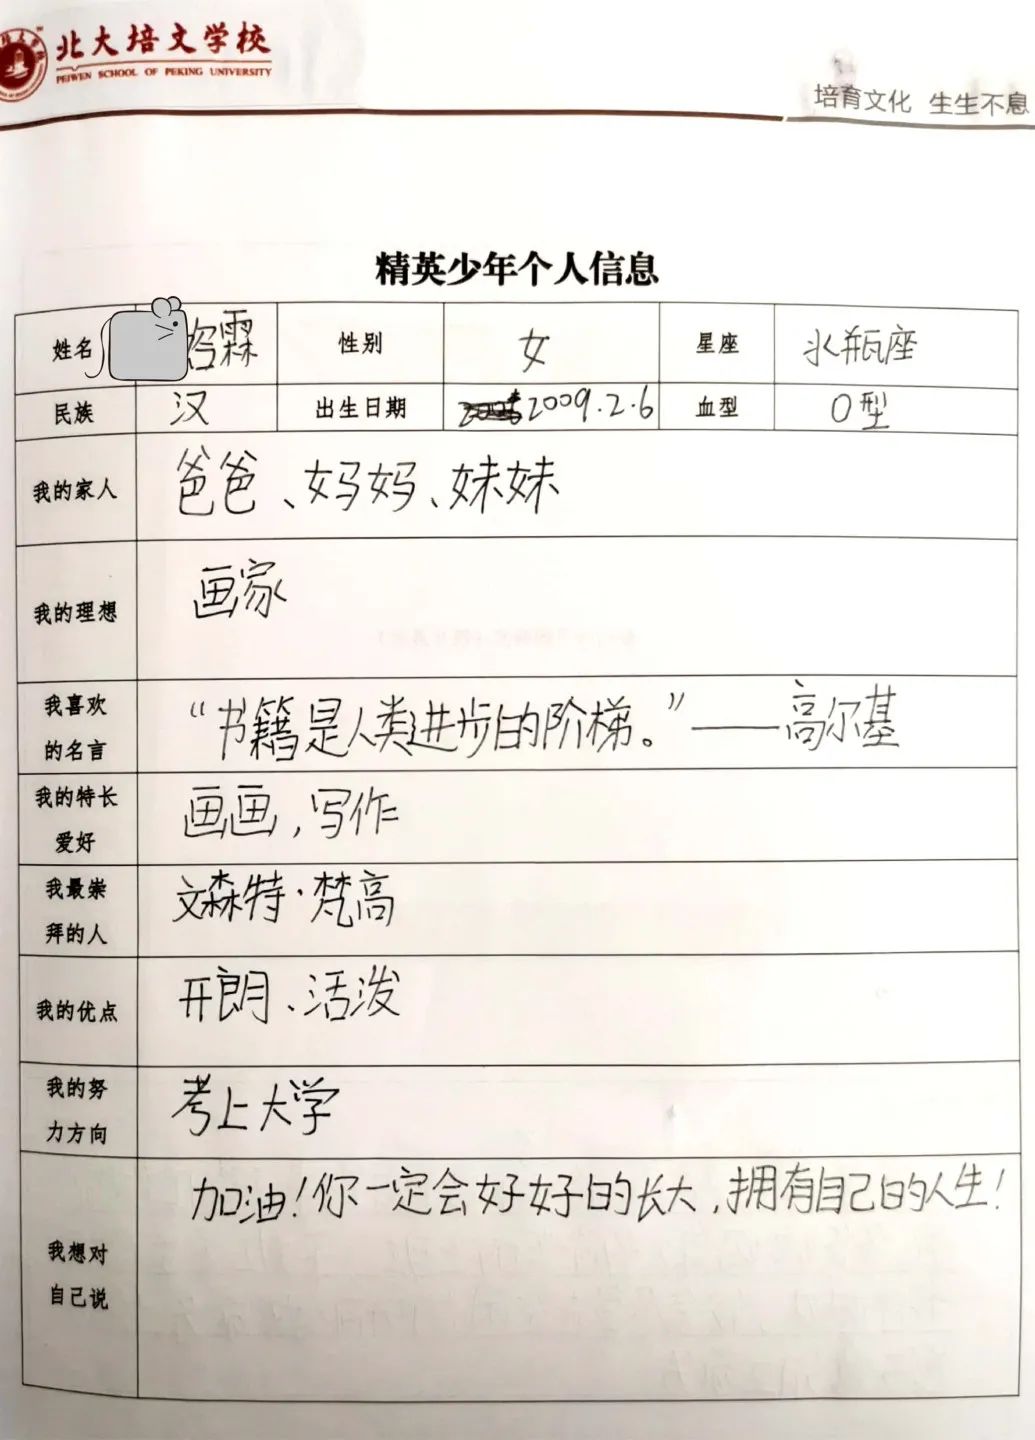 北大培文学校
PEIWEN SCHOOL OF PEKING UNIVERSITY
培育文化 生生不息
精英少年个人信息
姓名 霖 性别 女 星座 水瓶座
民族 汉 出生日期 2009.2.6 血型 O型
我的家人 爸爸、妈妈、妹妹
我的理想 画家
我喜欢的名言 “书籍是人类进步的阶梯。”——高尔基
我的特长爱好 画画,写作
我最崇拜的人 文森特·梵高
我的优点 开朗、活泼
我的努力方向 考上大学
我想对自己说 加油!你一定会好好的长大,拥有自己的人生!